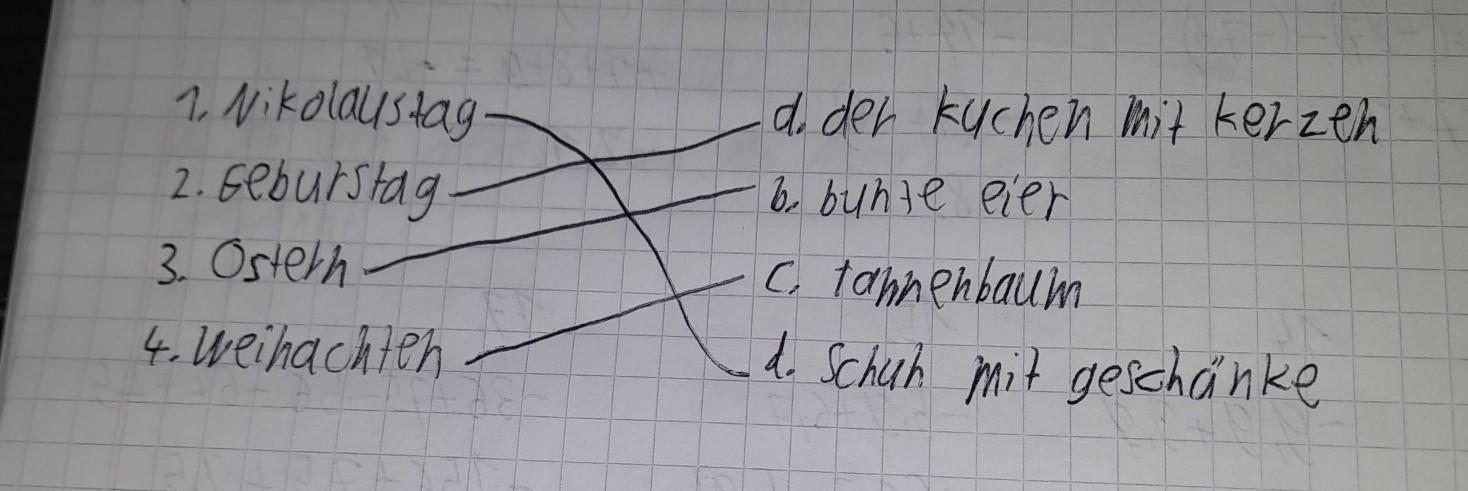 1. Nikolaustag d. der kuchen mit kerzen
2. Geburstag b. bunte eier
3. Ostern c. tannenbaum
4. Weihachten d. Schuh mit geschänke